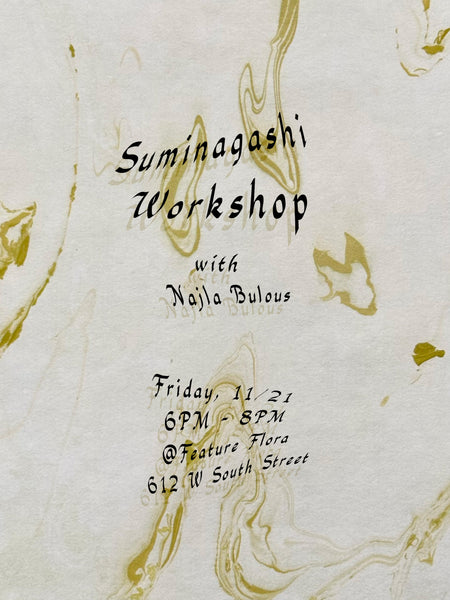 Suminagashi
Workshop
with
Najla Bulous
Friday, 11/21
6PM - 8PM
@Feature Flora
612 W South Street